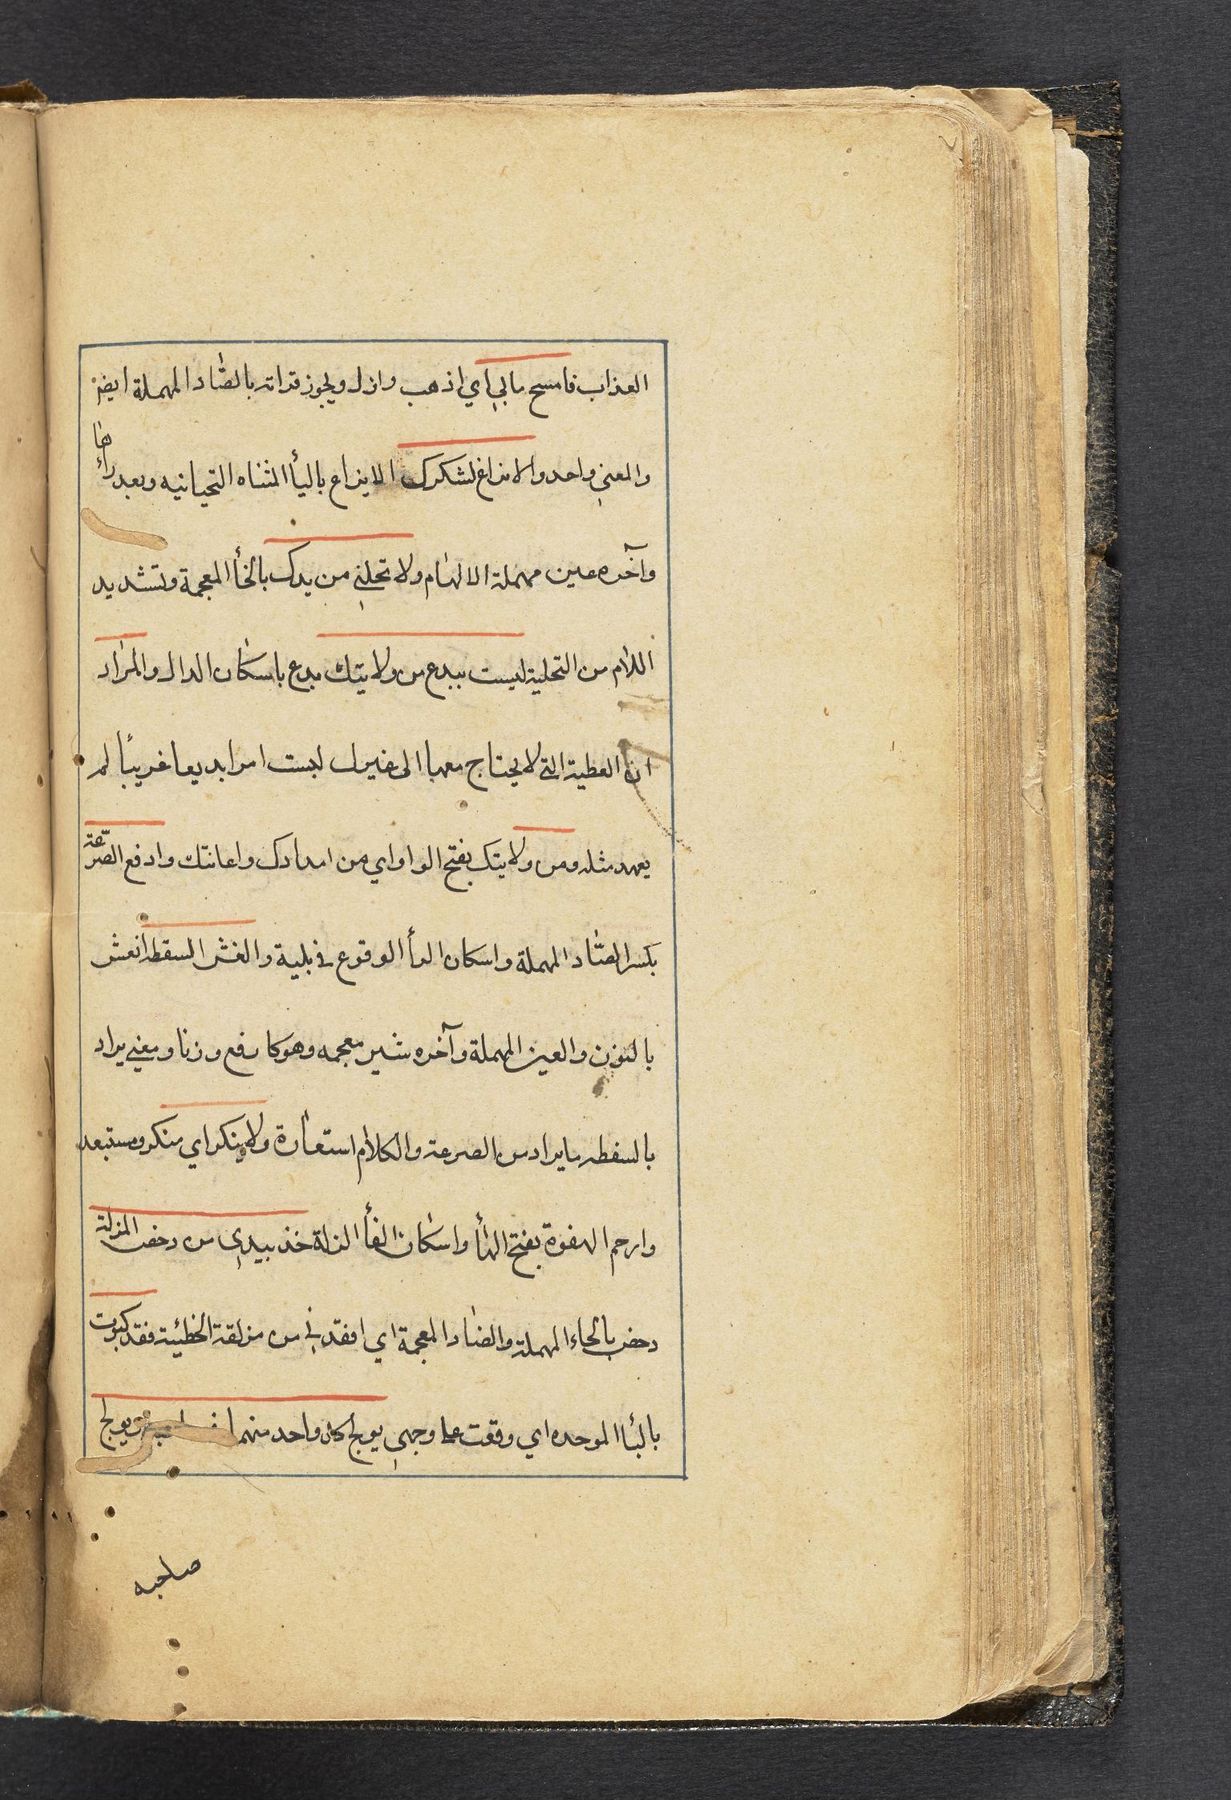 العذاب فامسح ما بي اي اذهب وازل ويجوز قراته بالصاد المهملة ايضا
والمعني واحد والايزاع لشكرك الايزاع باليأ المثناه التحيانيه وبعد رأها
وآخره عين مهملة الالهام ولا تخلني من يدك بالخأ المعجمة وتشديد
اللام من التخلية ليست ببدع من ولايتك بدع باسكان الدال والمراد
ان العطية التي لا يحتاج معها الى غيرك ليست امرا بديعا غريبا لم
يعهد مثله ومن ولايتك بفتح الواو اي من امدادك واعانتك وادفع الصرعة
بكسر الصاد المهملة واسكان الرأ الوقوع في بلية وانعش السقطه انعش
بالنون والعين المهملة وآخره شين معجمه وهو كارفع وزنا ومعني يراد
بالسقطه ما يراد من الصرعة والكلام استعارة ولا ينكر اي منكر ومستبعد
وارحم الهفوة بفتح الهأ واسكان الفأ الزلة خذ بيدي من دحض المزلة
دحض بالحاء المهملة والضاد المعجمة اي انقذني من مزلقة الخطيئة فقد كبوت
بالبأ الموحده اي وقعت على وجهي يولج كل واحد منهما ويولج
صاحبه